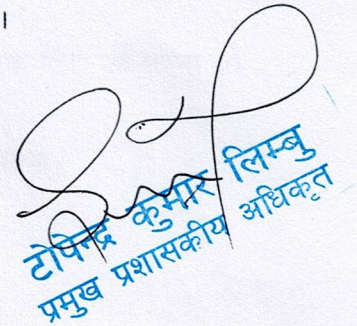 ।
टोपेन्द्र कुमार लिम्बु
प्रमुख प्रशासकीय अधिकृत